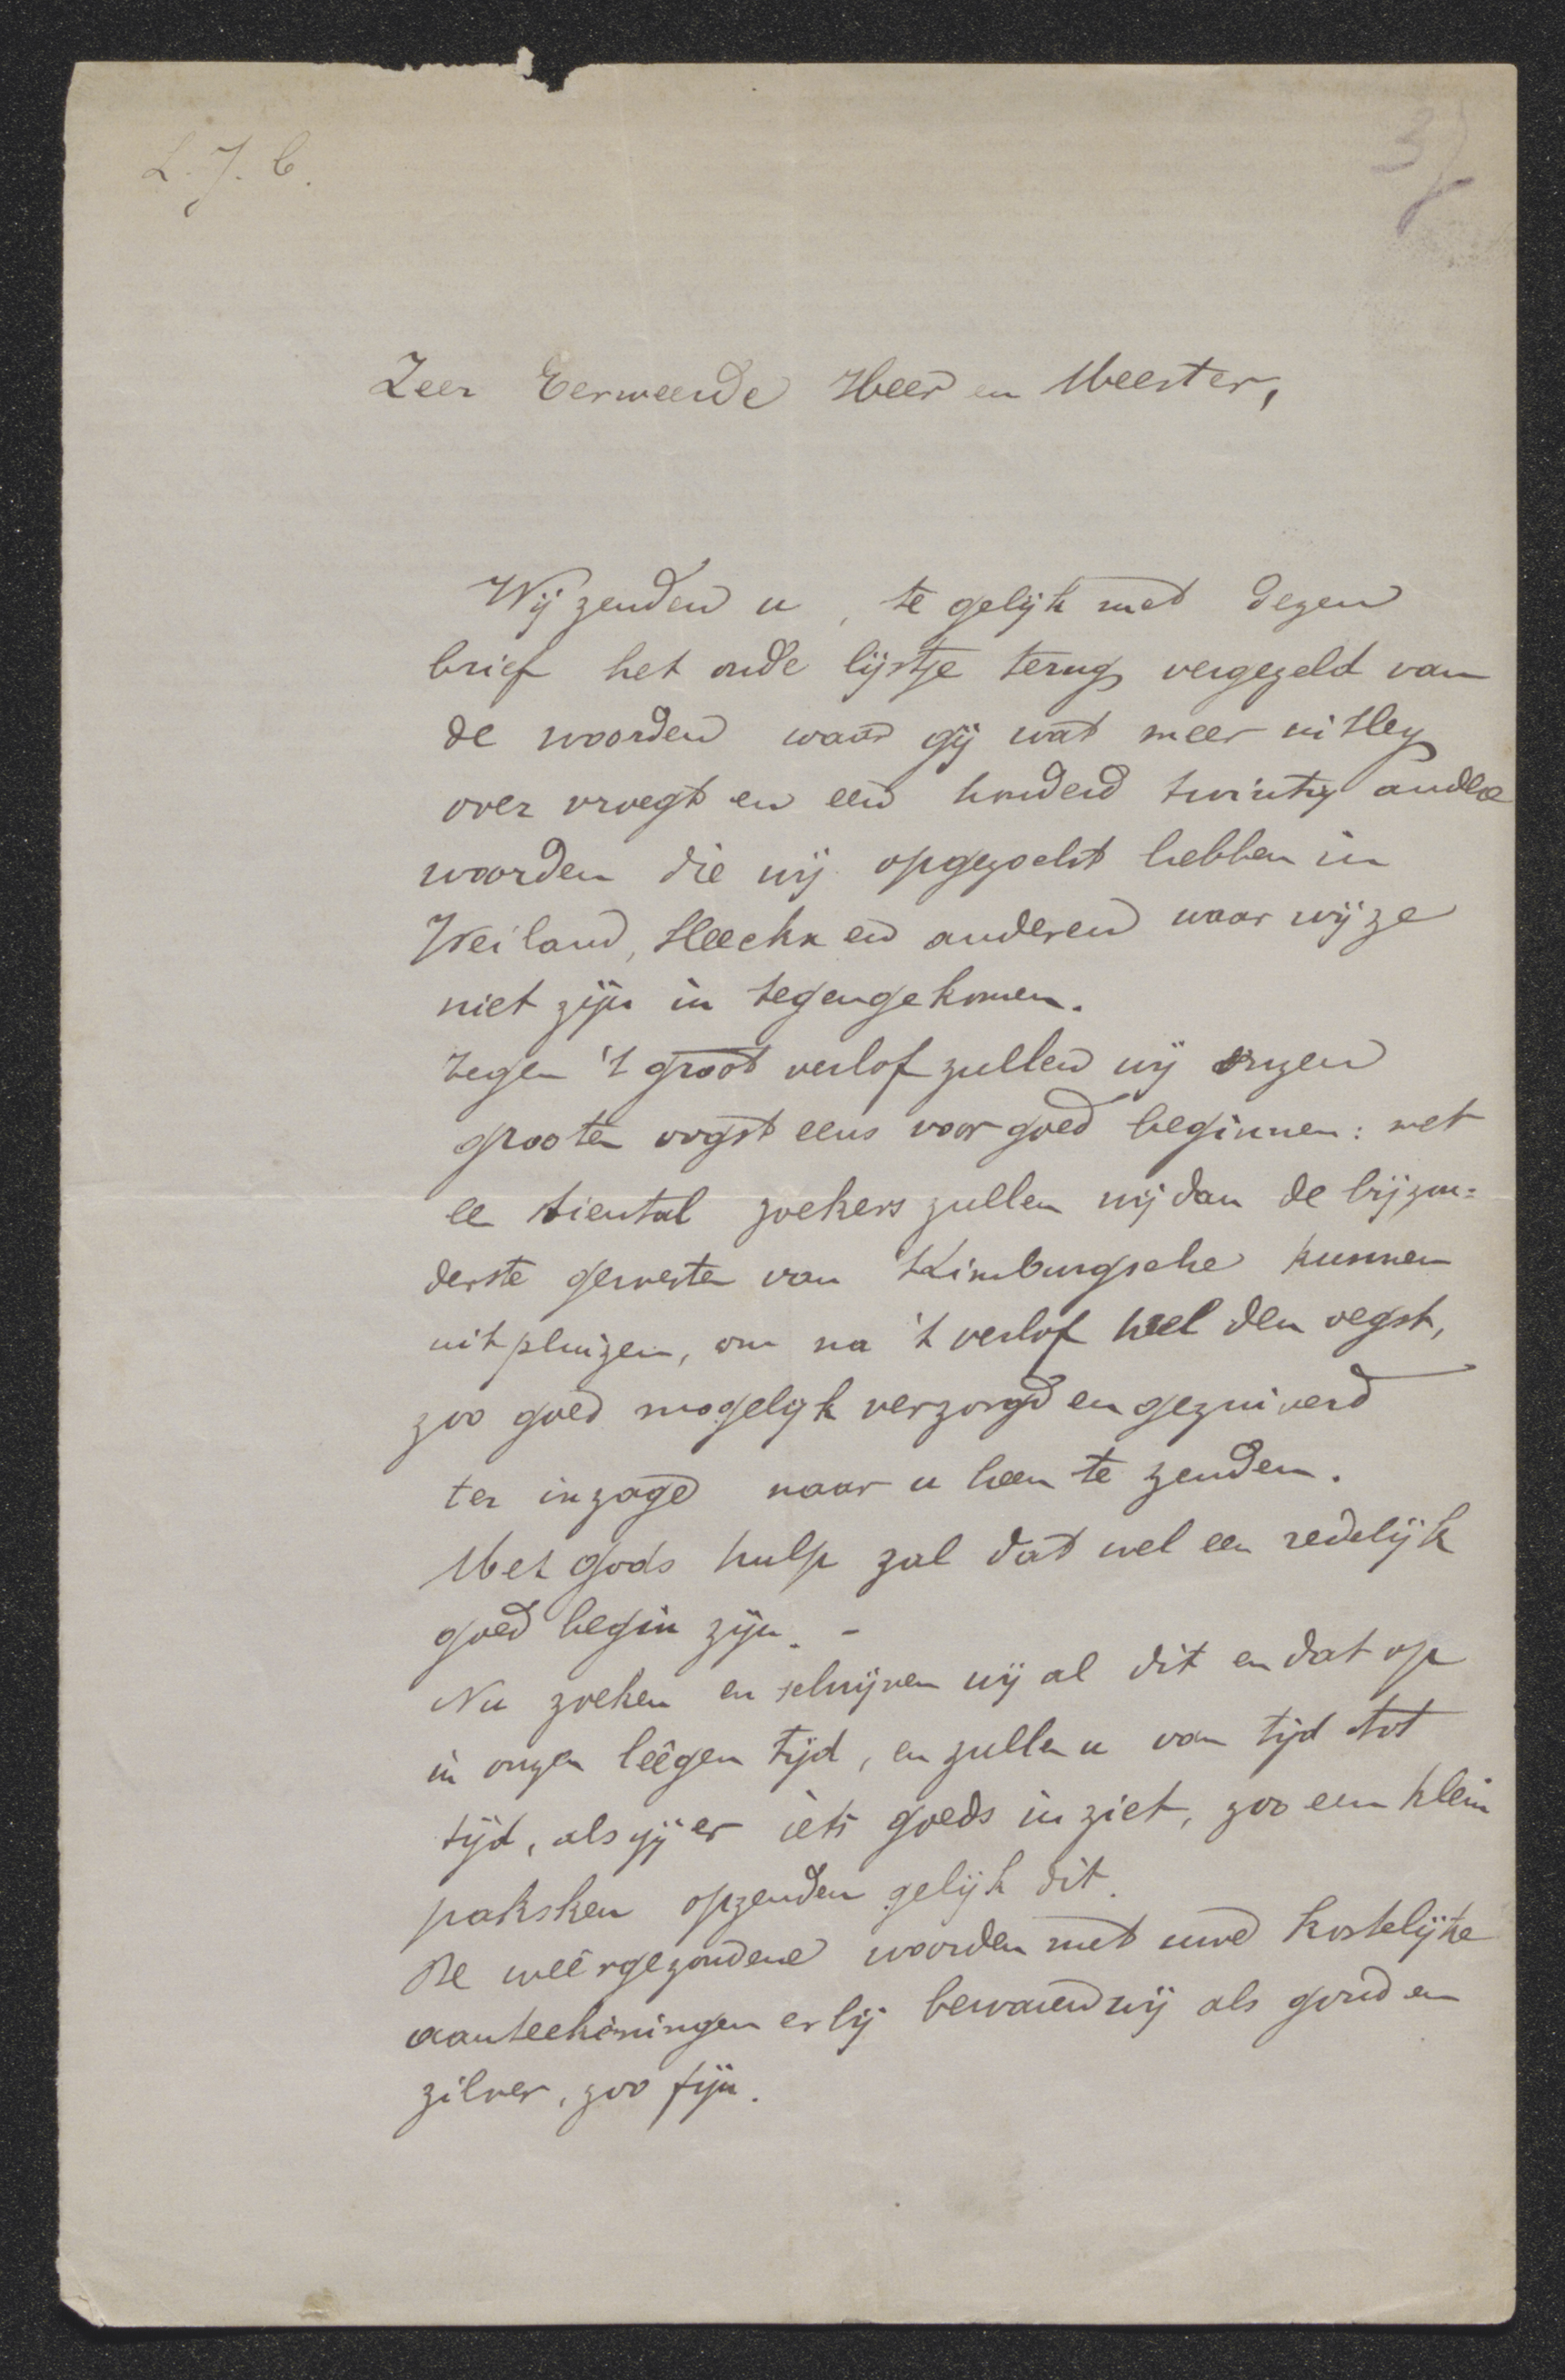 L. J. C.
37
Zeer Eerweerde Heer en Meester,
Wij zenden u, te gelijk met dezen
brief het oude lijstje terug vergezeld van
de woorden waar gij wat meer uitleg
over vroegt en een honderd twintig andere
woorden die wij opgezocht hebben in
Weiland, Heeckx en anderen waar wij ze
niet zijn in tegengekomen.
Tegen 't groot verlof zullen wij onzen
grooten oogst eens voor goed beginnen: met
een tiental zoekers zullen wij dan de bijzon=
derste gewesten van 't Limburgsche kunnen
uitpluizen, om na 't verlof heel den oegst,
zoo goed mogelijk verzorgd en gezuiverd
ter inzage naar u heen te zenden.
Met Gods hulp zal dat wel een redelijk
goed begin zijn. -
Nu zoeken en schrijven wij al dit en dat op
in onzen leêgen tijd, en zullen u van tijd tot
tijd, als gij er iets goeds in ziet, zoo een klein
paksken opzenden gelijk dit.
De weêrgezondene woorden met uwe kostelijke
aanteekeningen er bij bewaren wij als goud en
zilver, zoo fijn.